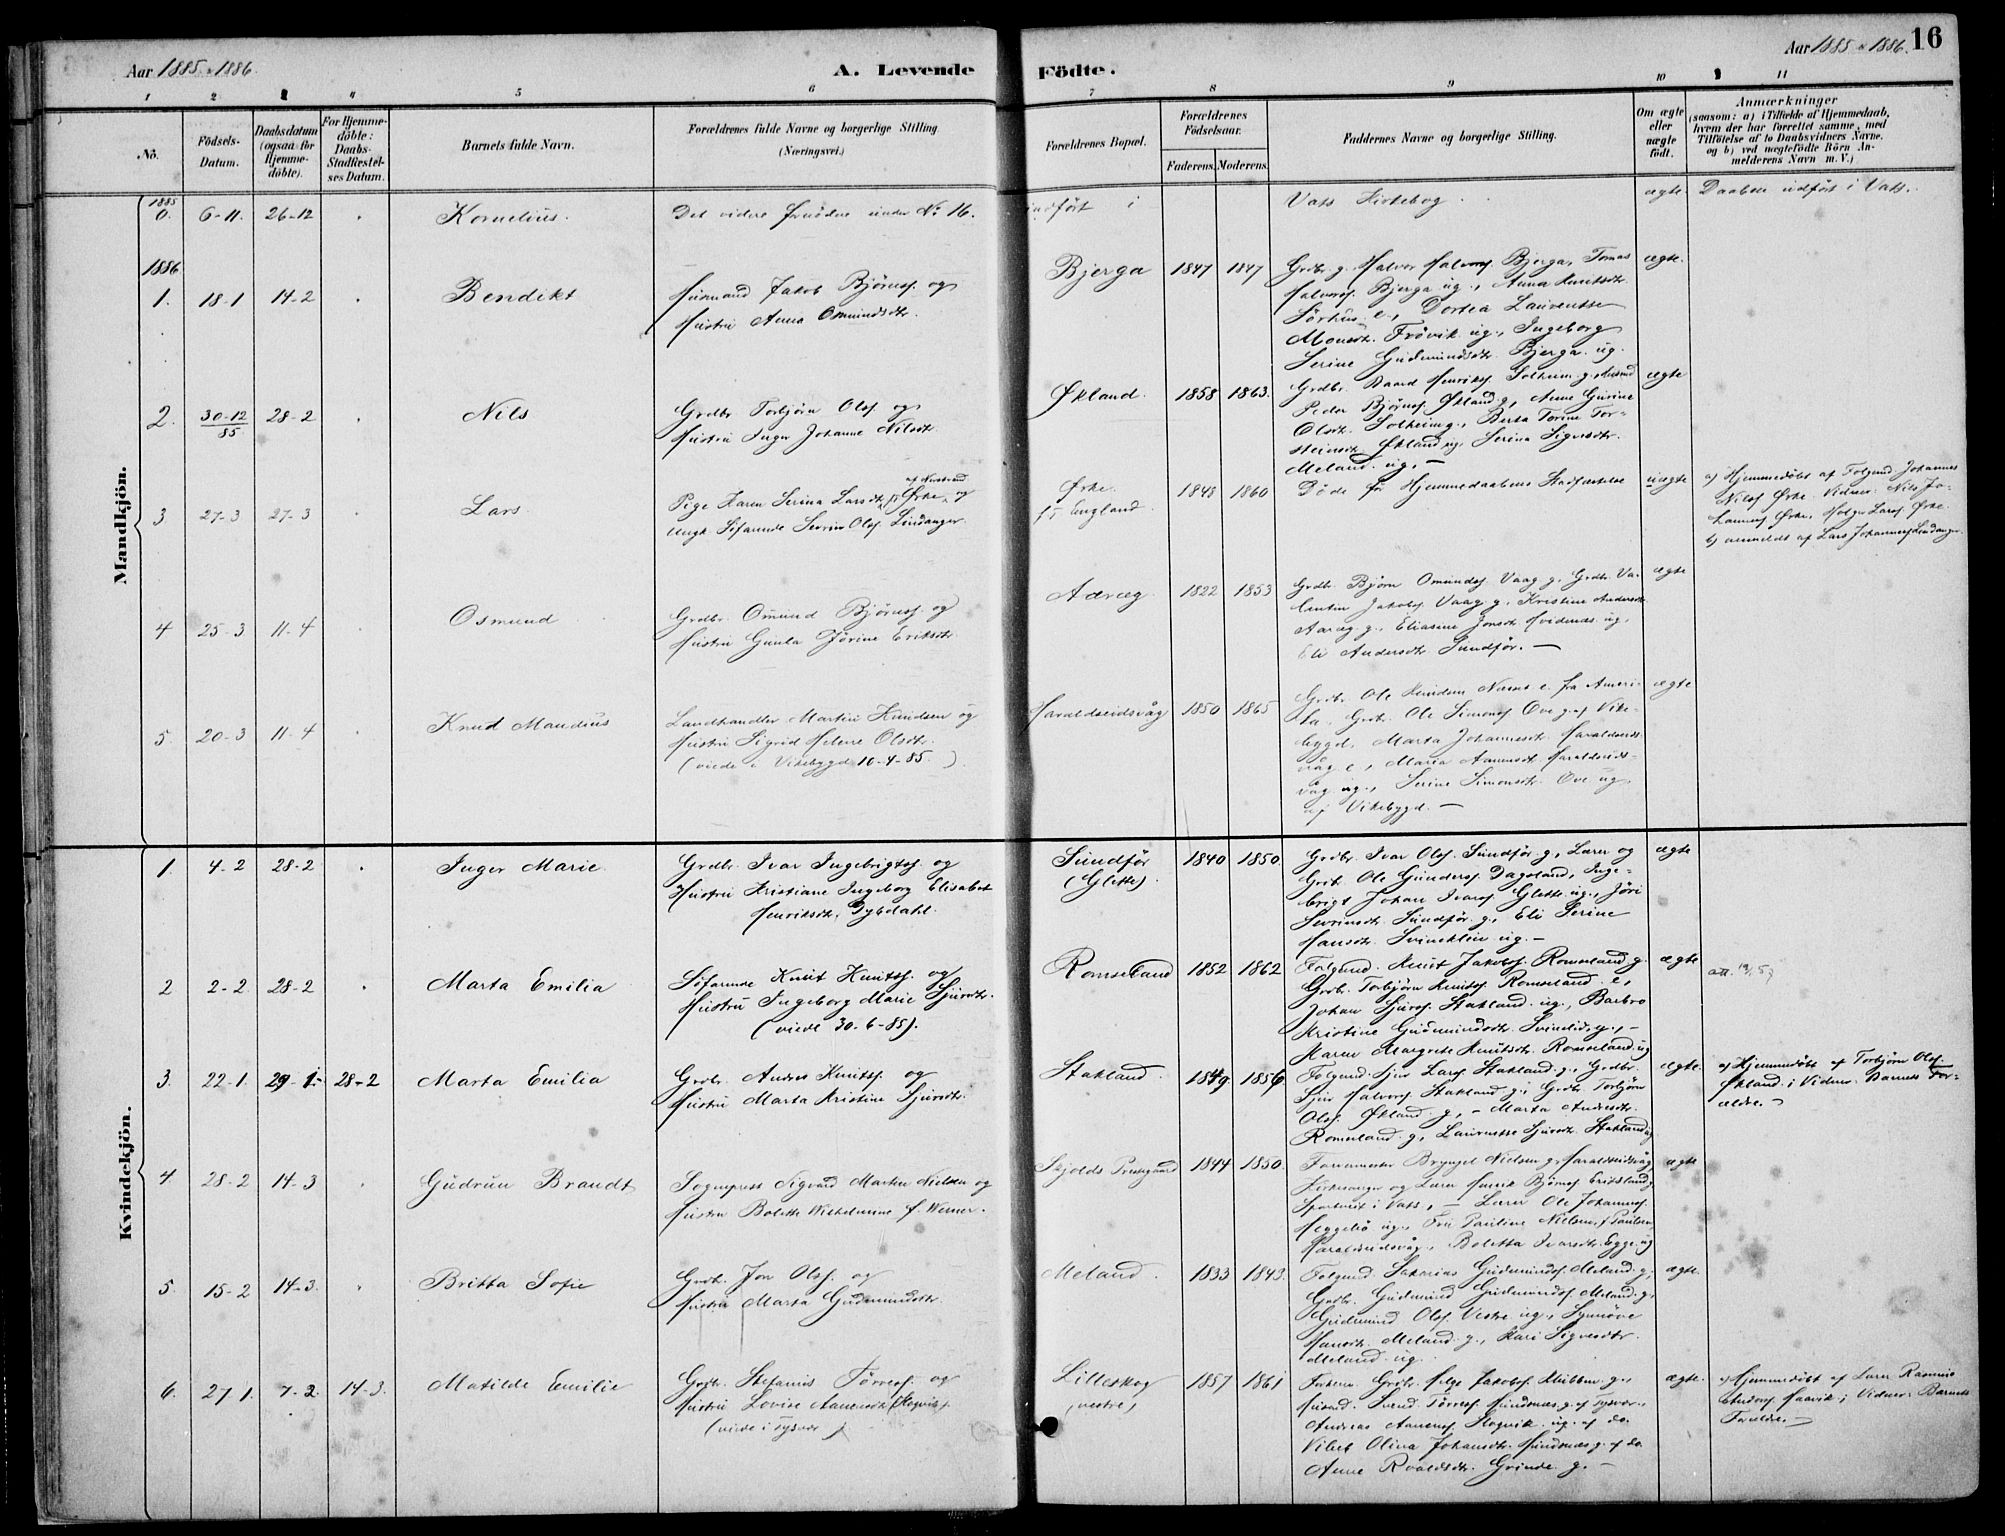 Aar 1885 & 1886.
A. Levende Födte.
Aar 1885 & 1886. 16
1 2 3 4 5 6 7 8 9 10 11
No.
Födsels-Datum.
Daabsdatum (ogsaa for Hjemmedöbte).
For Hjemmedöbte: Daabs-Stadfæstelses Datum.
Barnets fulde Navn.
Forældrenes fulde Navne og borgerlige Stilling (Næringsvei.)
Forældrenes Bopæl.
Forældrenes Födselsaar.
Faderens. Moderens.
Faddernes Navne og borgerlige Stilling.
Om ægte eller uægte födt.
Anmærkninger
(saasom: a) i Tilfælde af Hjemmedaab, hvem der har forrettet samme, med Tilföielse af to Daabsvidners Navne. og b) ved uægtefödte Börn Anmelderens Navn m. V.)
Mandkjön.
1885
0. 6-11. 26-12 Kornelius. Det videre under No 16. indført i Vats Kirkebog. ægte Daaben udført i Vats.
1886
1. 18-1 14-2 Bendikt
Husmand Jakob Bjørnss. og
Hustru Anna Omundsdtr.
Bjerga 1847 1847
Grdbr. g. Halvor Halvors. Bjerga, Tomas
Halvors. Bjerga ug., Anna Knutsdtr.
Sørhus e., Dortea Lauentse
Monsdtr. Frøvik ug., Ingeborg
Serine Gudmundsdtr. Bjerga ug.
ægte.
2. 30-12/85 28-2 Nils
Grdbr Torbjørn Olss. og
Hustru Inger Johanne Nilsdtr.
Økland. 1858 1863.
Grdbr. Baard Henriks. Solheim g.,
Peder Bjørnss. Økland g., Anne Gurine
Olsdtr. Solheim g., Berta Torine Tor-
steinsdtr. Økland ug., Serina Sigvesdtr.
Meland ug. —
ægte
3 27-3 27-3 Lars.
Pige Karen Serina Larsdtr. Ørke og
Ungk. Søfarende Sevrin Olss. Lindanger.
Ørke.
England. 1848 1860
Døde før Hjemmedaabens Stadfæstelse
uægte
a) Hjemmedøbt af Folgmd. Johannes
Nilss. Ørke. Vidner: Nils Jo-
hanness. Ørke, Holger Larss. Ørke.
b) anmeldt af Lars Johanness. Lindanger.
4 25-3 11-4 Osmund
Grdbr. Omund Bjørnss. og
Hustru Gunla Jørine Eriksdtr.
1822 1853
Grdbr. Bjørn Omunds. Vaag g., Grdbr. Va-
lentin Jakobs. Vaag g., Kristine Andersdtr.
g., Eliasine Jonsdtr. Hvidenæs ug.,
Eli Andersdtr. Sundfør. —
ægte
5. 20-3 11-4 Knud Maudius
Landhandler Martin Knudsen og
Hustru Sigrid Helene Olsdtr.
(viede i Vikebygd 10-4-85.)
Haraldseidsvåg 1850 1865
Grdbr. Ole Knudsen Næsse e. fra Ameri-
ka, Grdbr. Ole Simons. Ove g. af Vike-
bygd, Marta Johannesdtr. Haraldseids-
våg e, Maria Aanensdtr. Haraldseids-
våg ug., Serine Simonsdtr. Ove ug.
af Vikebygd. —
ægte
Kvindekjön.
1. 4-2 28-2 Inger Marie.
Grdbr. Ivar Ingebrigtss. og
Hustru Kristiane Ingeborg Elisabet
Henriksdtr. Dybdahl.
Sundfør
(Glette) 1840 1850
Grdbr. Ivar Olss. Sundfør g., Lærer og
Grdb. Ole Gunders. Dagsland, Inge-
brigt Johan Ivarss. Glette ug., Jøri
Sevrinsdtr. Sundfør g., Eli Serine
Hansdtr. Svineklein ug. —
ægte
2 2-2 28-2 Marta Emilia
Søfarende Knut Knuts. og
Hustru Ingeborg Marie Sjursdtr.
(viede 30-6-85).
Romseland 1852 1862
Folgmd. Knut Jakobss. Romseland g.,
Grdb. Torbjørn Knutss. Romseland e,
Johan Sjurss. Stakland ug., Barbro
Kristine Gudmundsdtr. Svindis g., —
Karen Margrete Knutsdtr. Romseland ug
ægte
3. 22-1. 29-1- 28-2 Marta Emilia
Grdbr. Andres Knutss. og
Hustru Marta Kristine Sjursdtr.
Stakland. 1849 1856
Folgmd. Sjur Larss. Stakland g., Grdbr.
Sjur Halvors. Stakland g., Grdbr. Torbjørn
Olss. Økland g., — Marta Andresdtr.
Romseland g., Lauentse Sjursdtr. Stakland ug
ægte.
a) Hjemmedøbt af Torbjørn Olss.
Økland; Vidner: Barnets For-
ældre. —
4 28-2 14-3 Gudrun Brandt
Sogneprest Sigvard Martin Nielsen og
Hustru Bolette Wilhelmine f. Werner.
Skjolds Prestegaard 1844 1850.
Farvermester Bryngel Nielsen g. Haraldseidsvåg,
Kirkesanger og Lærer Henrik Bjørnss. Eridsland g.
i Vats, — Lærer Ole Johanness.
ug., Fru Pauline Nielsen f. Paulsen
Haraldseidsvåg, Boletta Ivarsdtr. Egge ug
ægte
5. 15-2 14-3. Britta Sofie
Grdb. Jon Olss. og
Hustru Marta Gudmundsdtr.
Meland. 1833 1843.
Folgmd. Sakarias Gudmunds. Meland g.,
Grdbr. Gudmund Gudmunds. Meland g.,
Gudmund Olss. Vestre ug., Synnøve
Hansdtr. Meland g., Kari Sigvesdtr.
Meland ug.
ægte.
6. 27-1. 7-2. 14-3. Matilde Emilie
Grdb. Stefanus Tørress. og
Hustru Lovise Aanensdtr. (Slogvik).
(viede i Tysvær)
Lilleskog
(vestre) 1857 1861
Enkem. Grdbr. Helge Jakobss. Klubben g.,
Husmd. Svend Tørress. Hundnæs g. af Tysvær.,
Andreas Aanens. Slogvik ug. af do.
Vibet Olina Johansdtr. Hundnæs g. af do.
Anne Roaldsdtr. Grinde g. —
ægte.
a) Hjemmedøbt af Lærer Rasmus
Haavik; Vidner: Barnets
Forældre. —